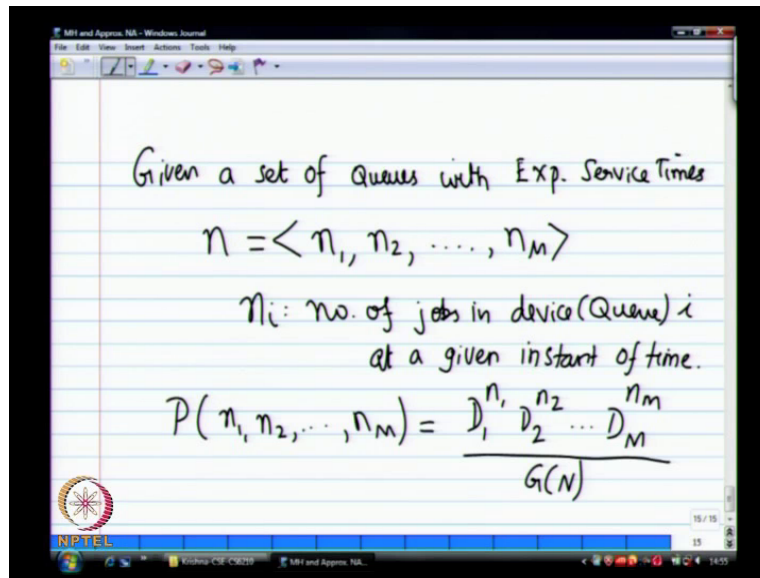 MH and Approx. NA - Windows Journal
File Edit View Insert Actions Tools Help
Given a set of Queues with Exp. Service Times
n = < n₁, n₂, ...., n_M >
n_i : no. of jobs in device (Queue) i
at a given instant of time.
P( n₁, n₂, ..., n_M ) = D₁^n₁ D₂^n₂ ... D_M^n_M
G(N)
15 / 15
NPTEL
15
Krishna-CSE-CS6210
MH and Approx. NA...
14:55